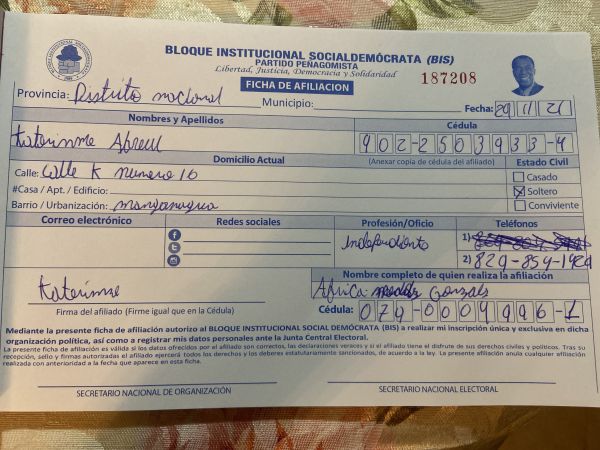 BLOQUE INSTITUCIONAL SOCIALDEMÓCRATA (BIS)
PARTIDO PEÑAGOMISTA
Libertad, Justicia, Democracia y Solidaridad
187208
FICHA DE AFILIACION
Provincia: Distrito nacional Municipio: Fecha: 29/11/21
Nombres y Apellidos Cédula
Katerinne Abreu 402-2503933-4
Domicilio Actual (Anexar copia de cédula del afiliado) Estado Civil
Calle: Calle K numero 16 Casado
#Casa / Apt. / Edificio: Soltero
Barrio / Urbanización: manganagua Conviviente
Correo electrónico Redes sociales Profesión/Oficio Teléfonos
Independiente 1)
2) 829-859-1924
Nombre completo de quien realiza la afiliación
Katerinne Africa Gonzals
Firma del afiliado (Firme igual que en la Cédula) Cédula: 074-0004996-1
Mediante la presente ficha de afiliación autorizo al BLOQUE INSTITUCIONAL SOCIAL DEMÓCRATA (BIS) a realizar mi inscripción única y exclusiva en dicha
organización política, así como a registrar mis datos personales ante la Junta Central Electoral.
La presente ficha de afiliación es válida si los datos ofrecidos por el afiliado son correctos, las declaraciones veraces y si el afiliado tiene el disfrute de sus derechos civiles y políticos. Tras su
recepción, sello y firmas autorizadas el afiliado ejercerá todos los derechos y los deberes estatutariamente sancionados, de acuerdo a la ley. La presente afiliación anula cualquier afiliación
realizada con anterioridad a la fecha que aparece en esta ficha.
SECRETARIO NACIONAL DE ORGANIZACIÓN SECRETARIO NACIONAL ELECTORAL